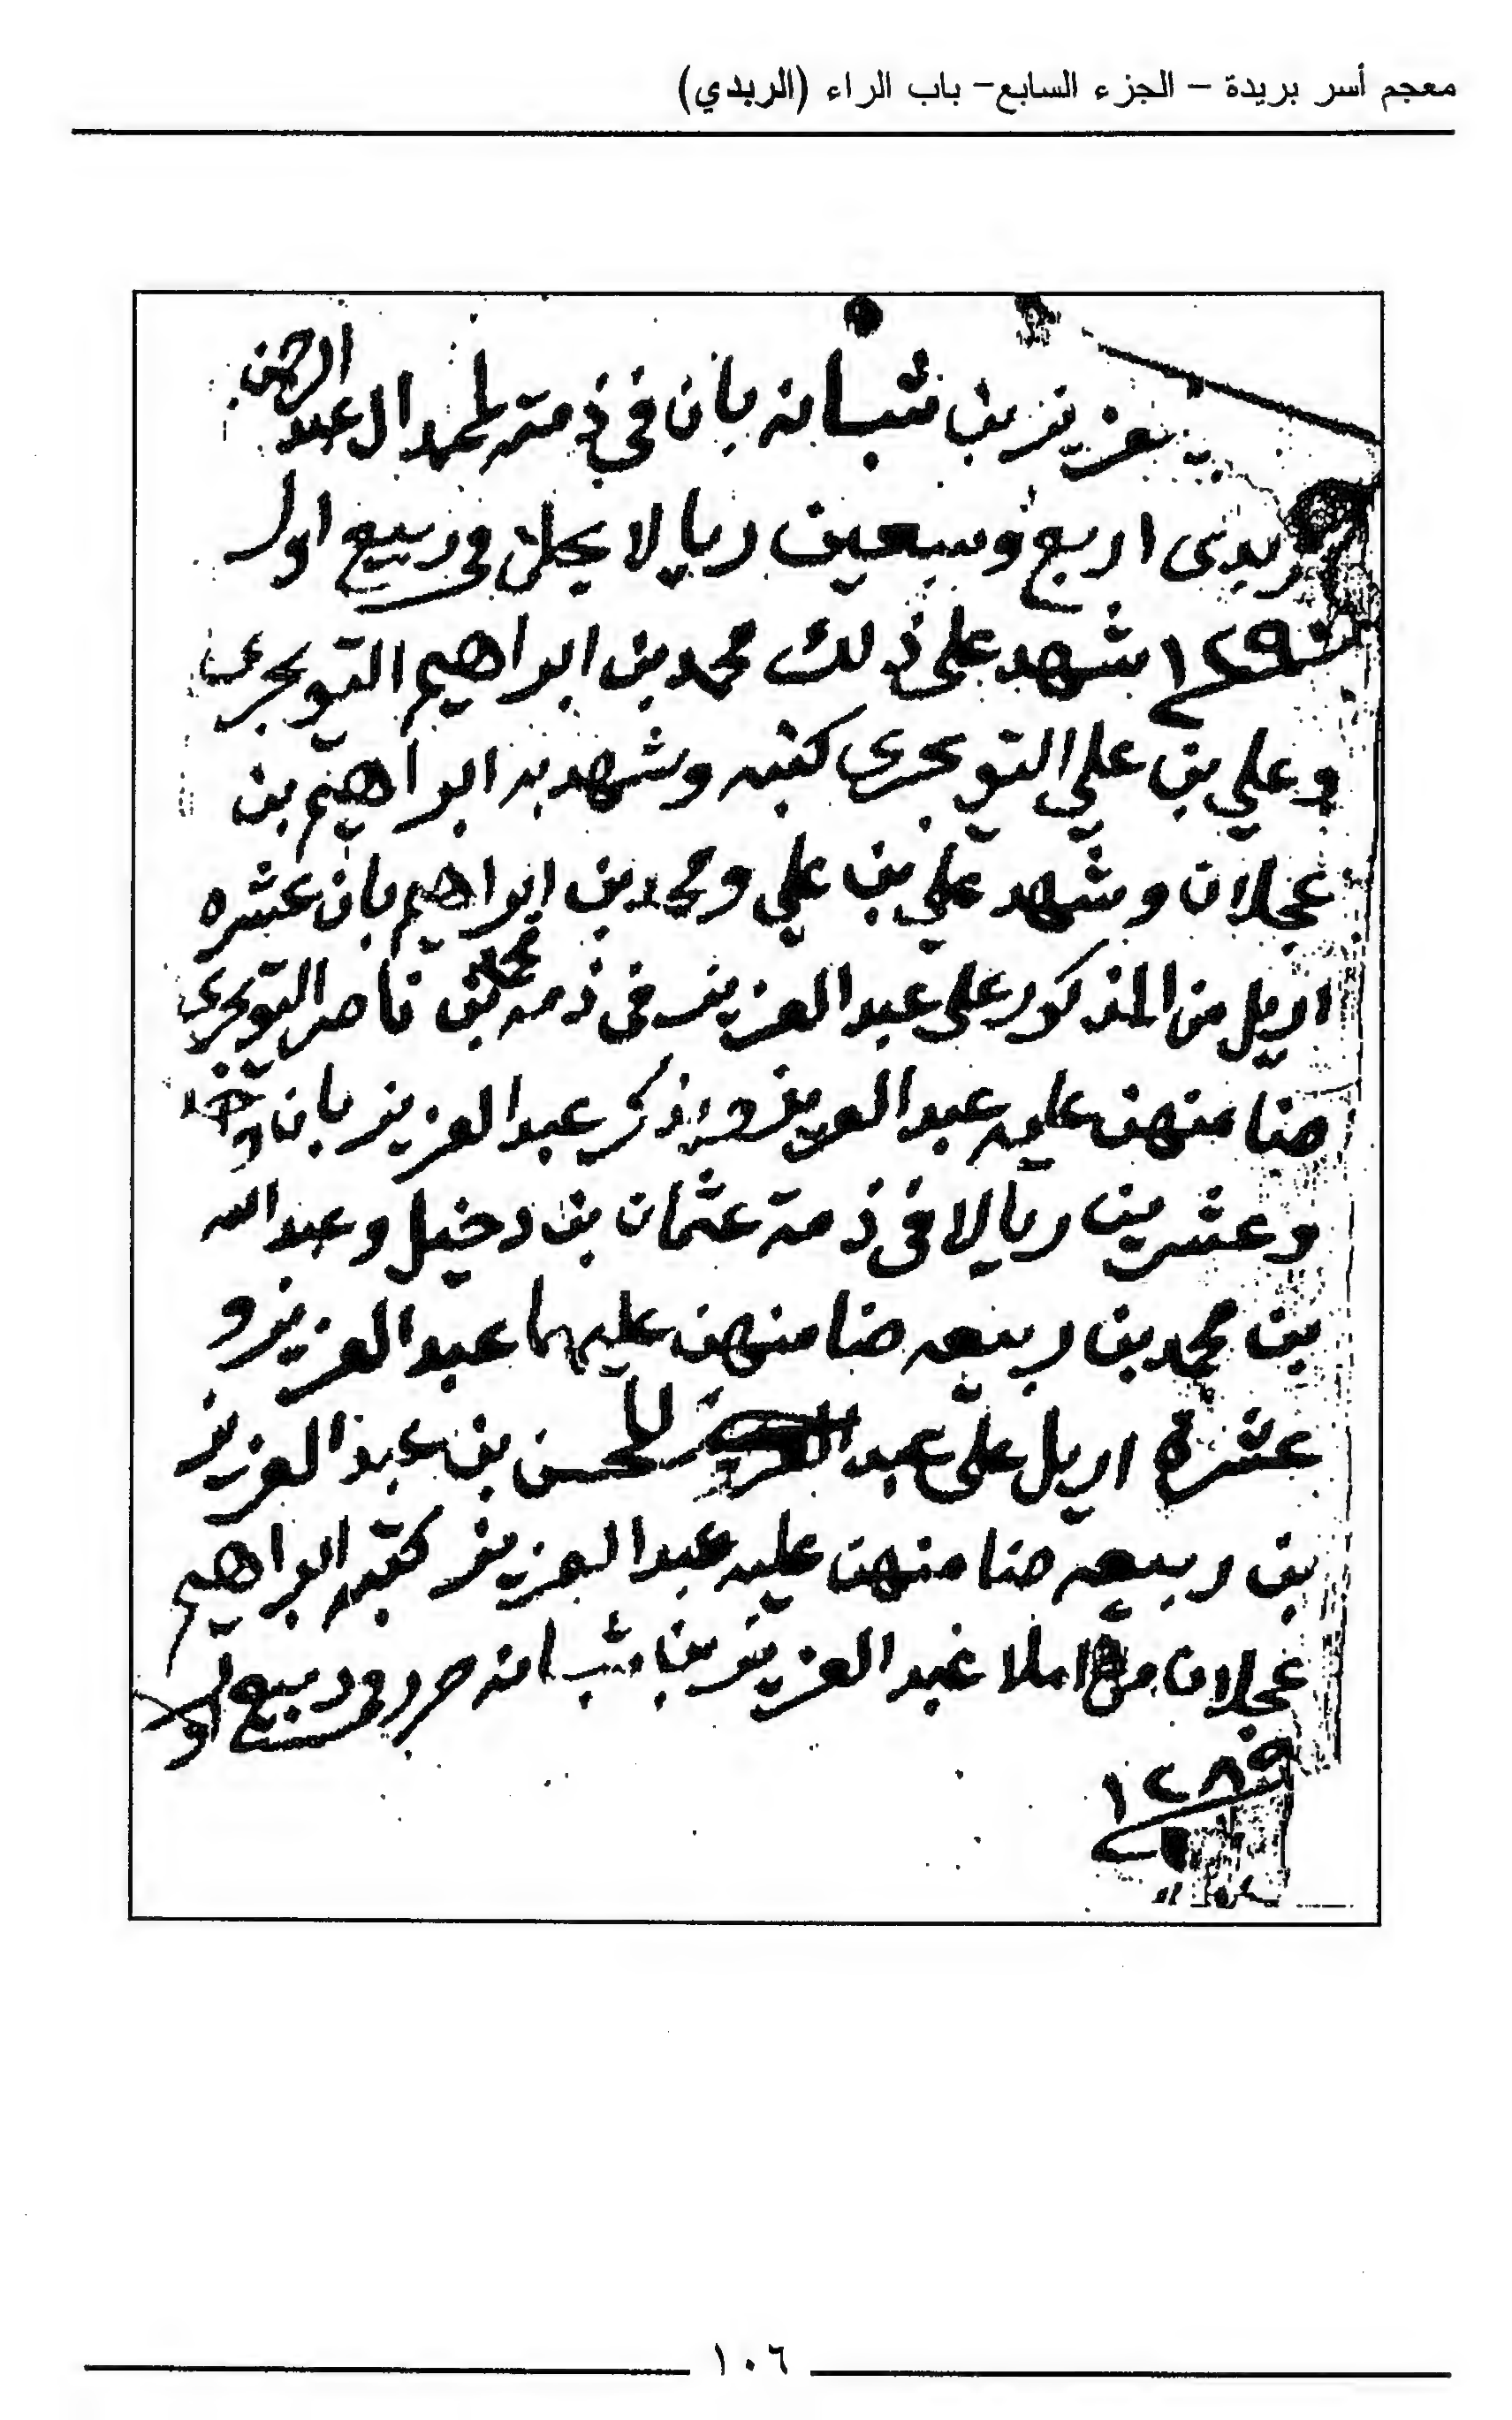 معجم أسر بريدة – الجزء السابع– باب الراء (الربدي)
عزيز بن شبانه بان في ذمته لمحمد ال عبد الرحمن
ربدي اربع وسبعين ريالا يحلن في ربيع اول
سنة ١٢٩٠ شهد على ذلك محمد بن ابراهيم التويجري
وعلي بن علي التويجري كتبه وشهد به ابراهيم بن
عجلان وشهد علي بن علي ومحمد بن ابراهيم بان عشره
اريل من المذكور على عبدالعزيز في ذمه محمد بن ناصر التويجري
ضنا منهن عليه عبدالعزيز ويذكر عبدالعزيز بان
وعشرين ريالا في ذمة عثمان بن دخيل وعبدالله
بن محمد بن ربيعه ضنا منهن عليهما عبدالعزيز و
عشرة اريل على عبد المحسن بن عبدالعزيز
بن ربيعه ضنا منهن عليه عبدالعزيز كتبه ابراهيم
عجلان من املا عبدالعزيز بن شبانه حرر في ربيع اول
١٢٨٩
١٠٦